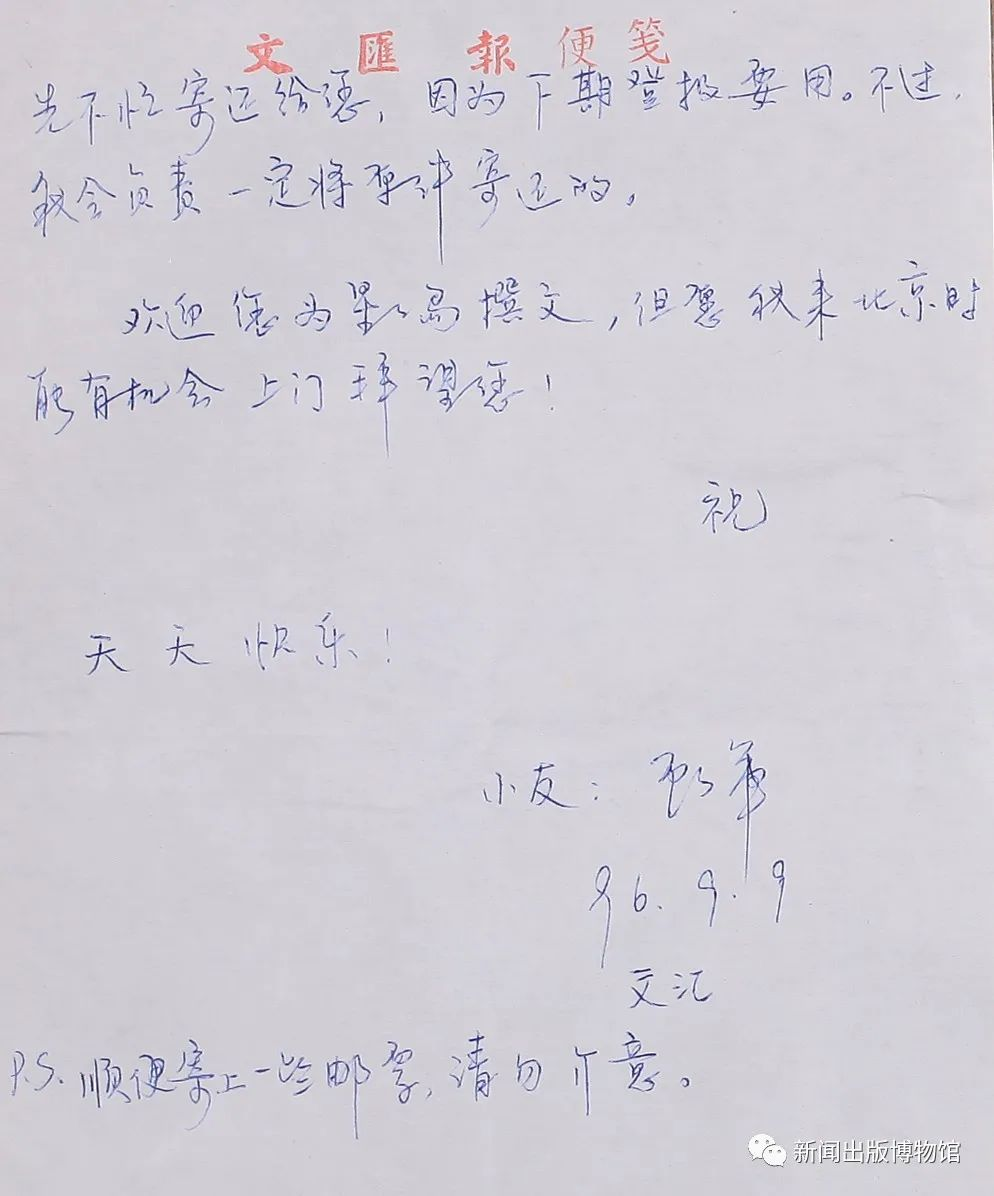 文匯報便笺
先不忙寄还给您，因为下期登报要用。不过，
我会负责一定将原件寄还的。
欢迎您为星岛撰文，但愿我来北京时
能有机会上门拜望您！
祝
天天快乐！
小友：
96.9.9
文汇
P.S. 顺便寄上一些邮票，请勿介意。
新闻出版博物馆